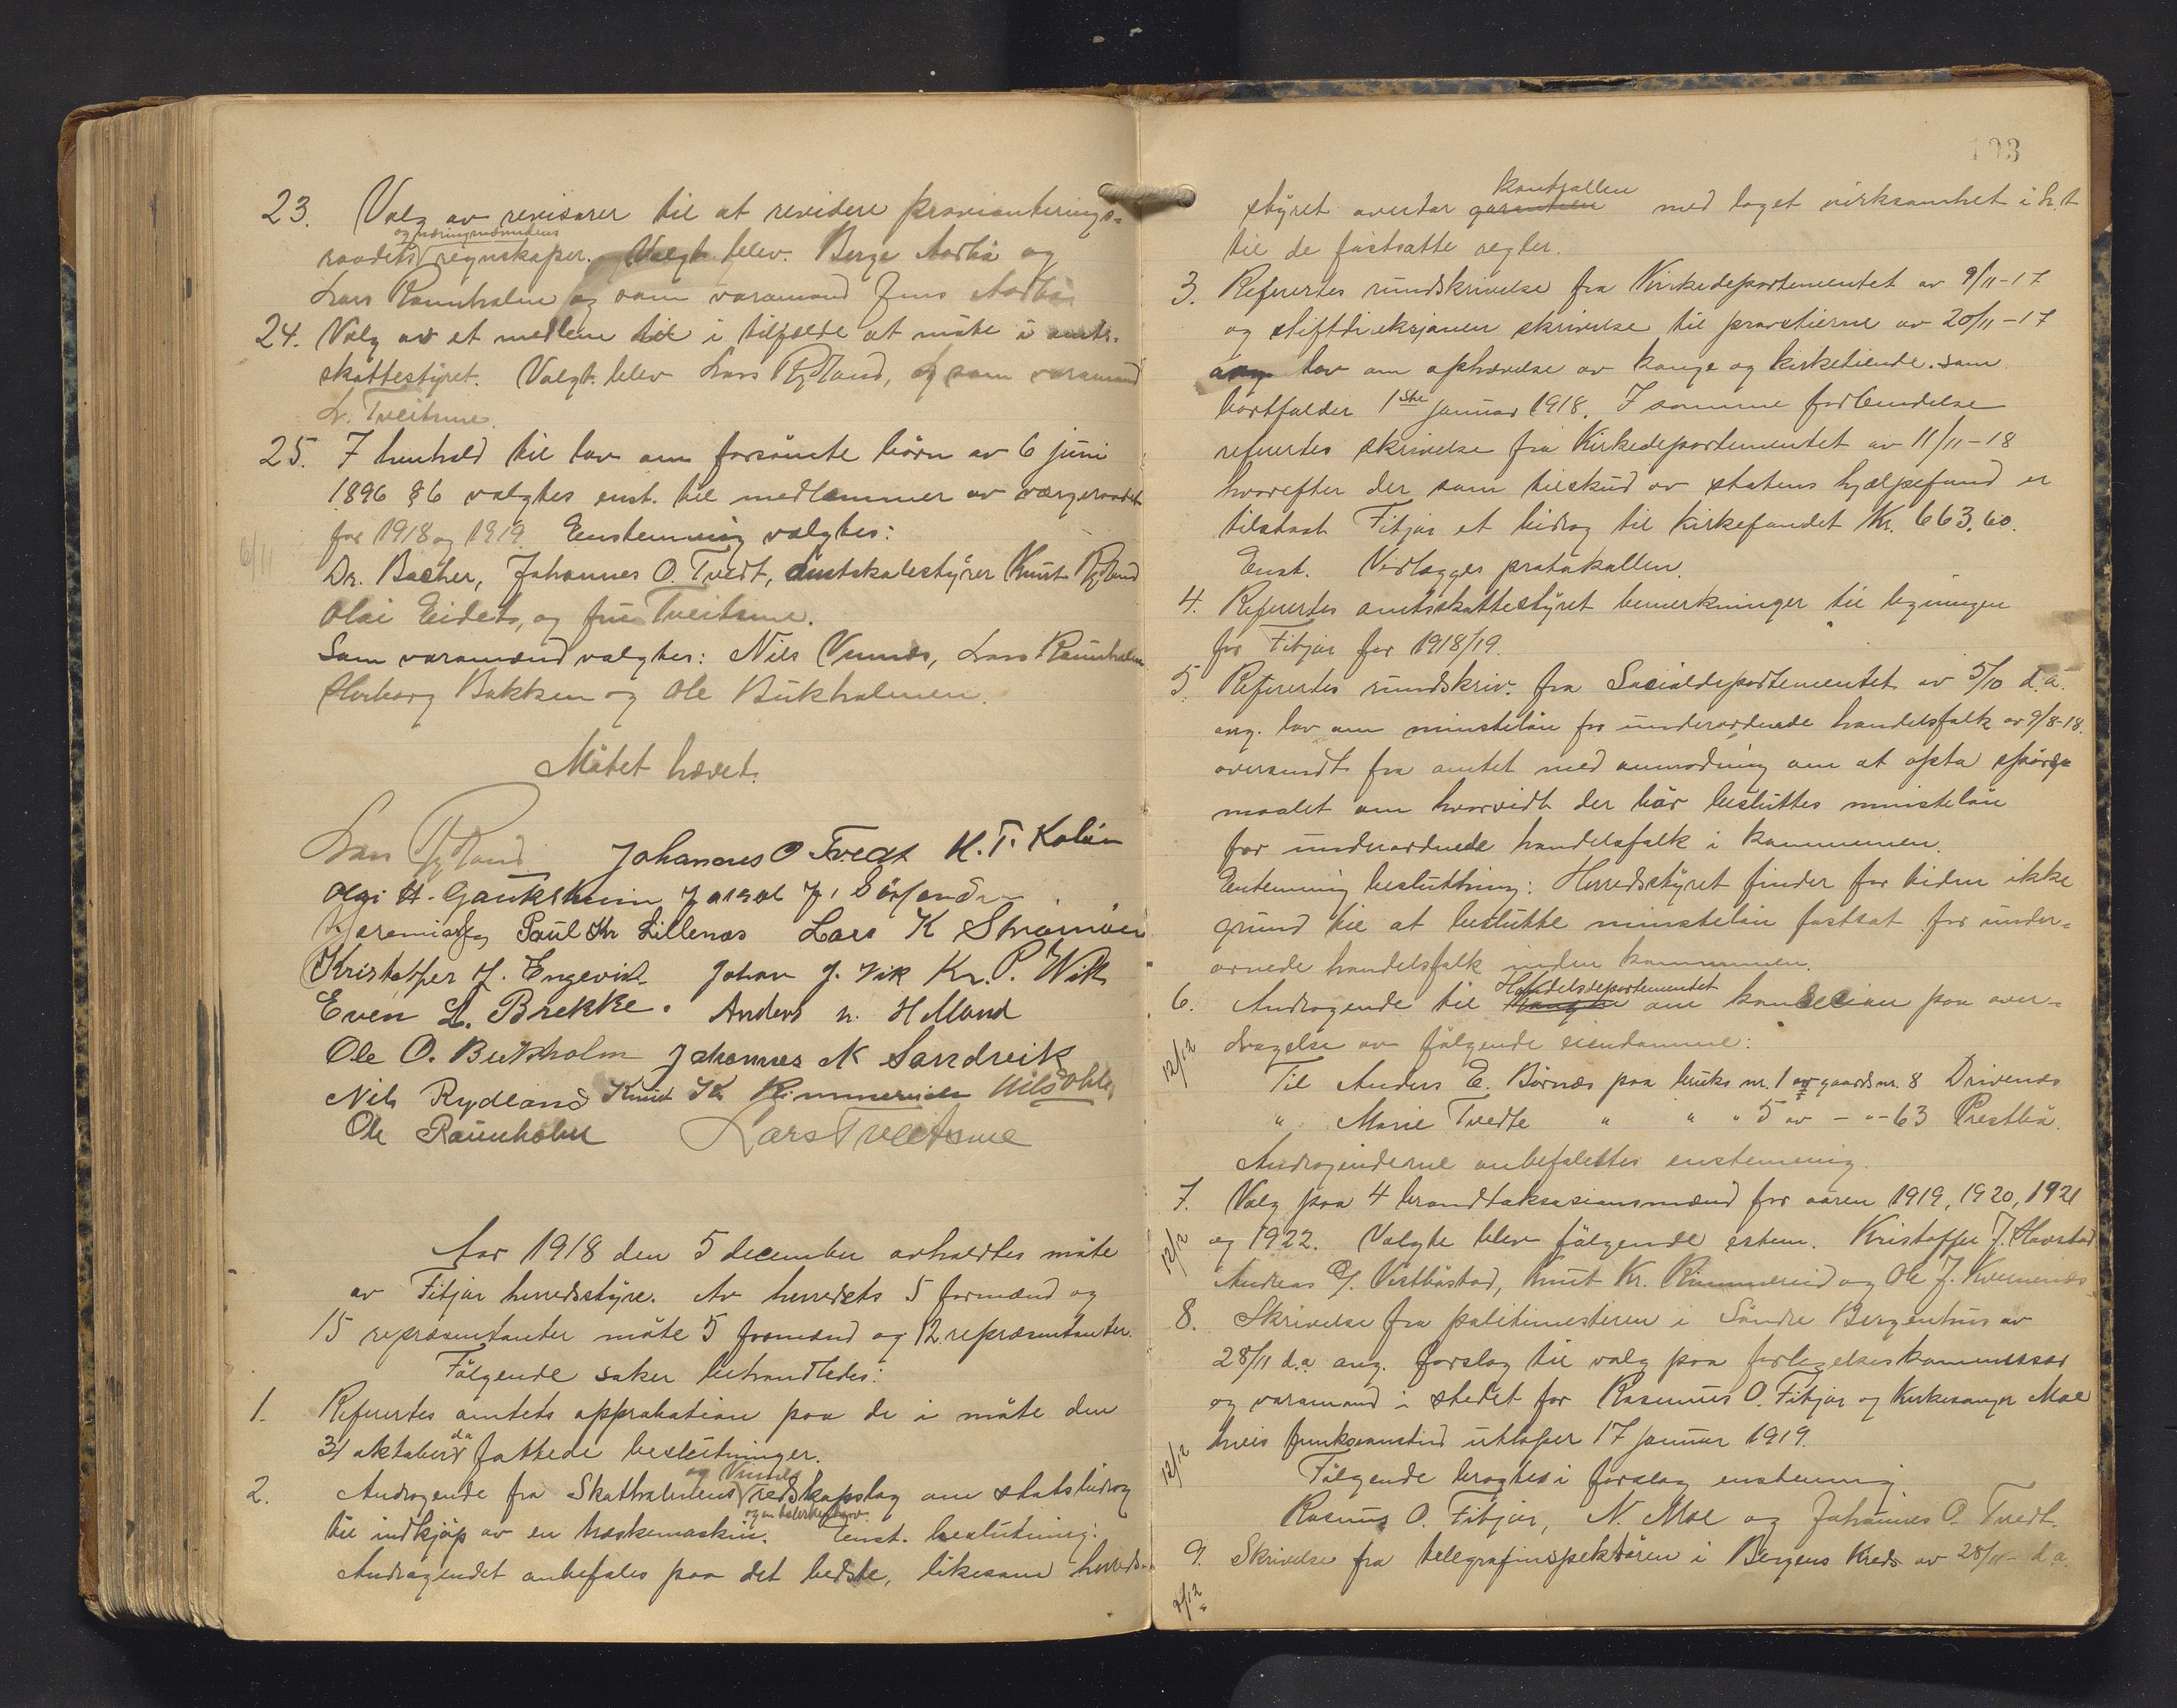 23. Valg av revisorer til at revidere provianterings-
og næringsnemndens
raadets regnskaper. Valgt blev. Berge Aarbø og
Lars Raunholm og som varamand Jens Aarbø
24. Valg av et medlem til i tilfælde at møte i amts-
skattestyret. Valgt blev Lars Rydland, og som varamand
L. Tveitsme.
25. I henhold til lov om forsömte börn av 6 juni
1896 § 6 valgtes enst. til medlemmer av værgeraadet
for 1918 og 1919. Enstemmig valgtes:
6/11
Dr. Bacher, Johannes O. Tvedt, amtskolestyrer Knut Rydland
Olai Eidets, og frue Tveitsme.
Som varamænd valgtes: Nils Vinnes, Lars Raunholm
Herborg Bakken og Ole Bukholmen.
Mötet hævet.
Lars Rydland Johannes O Tvedt K. T. Kolün
Olai H. Gauksheim
Paul Kr Lillenes Lars K Strömöen
Kristoffer J. Engevik Johan J. Vik Kr. P. Vik
Even L. Brekke. Anders N. Helland
Ole O. Bukholm Johannes K Sandvik
Nils Rydland Knut Kr Rimmereide
Ole Raunholm Lars Tveitsme
Aar 1918 den 5 december avholdtes möte
av Fitjar herredsstyre. Av herredets 5 formænd og
15 repræsentanter möte 5 formænd og 12 repræsentanter.
Fölgende saker behandledes:
1. Refertes amtets approbation paa de i möte den
da
31 oktober fattede beslutninger.
og Vinnes
2. Andragende fra Skatholmens redskapslag om statsbidrag
til indkjöp av en træskemaskin. Enst. beslutning:
Andragendet anbefales paa det bedste, likesom herreds-
103
kontrollen
styret overtar garantien med laget virksomhet i h.t
til de fastsatte regler.
3. Refertes rundskrivelse fra Kirkedepartementet av 9/11-17
og stiftdireksjonen skrivelse til provstierne av 20/11-17
ang lov om ophævelse av konge og kirketiende. som
bortfalder 1ste januar 1918. I samme forbindelse
refertes skrivelse fra Kirkedepartementet av 11/11-18
hvorefter der som tilskud av statens hjælpefond er
tilstaat Fitjar et bidrag til Kirkefondet Kr. 663.60.
Enst. Vedlægges protokollen.
4. Refertes amtsskattestyret bemerkninger til ligningen
for Fitjar for 1918/19.
5. Refertes rundskriv. fra Socialdepartementet av 5/10 d.a.
ang. lov om minstelön for underordnede handelsfolk av 9/8-18.
oversendt fra amtet med anmodning om at opta spörgs
maalet om hvorvidt der bör besluttes minstelön
for underordnede handelsfolk i kommunen.
Enstemmig beslutning: Herredsstyret finder for tiden ikke
grund til at beslutte minstelön fastsat for under-
ornede handelsfolk inden kommunen.
Handelsdepartementet
6. Andragende til om koncession paa over-
12/12
dragelse av fölgende eiendomme:
Til Anders E. Börnes paa bruks nr. 1 av gaards nr. 8 Drivenes
" Marie Tvedte " " " 5 av - " - 63 Prestbö.
Andragenderne anbefalettes enstemmig.
7. Valg paa 4 brandtaksasionsmænd for aaren 1919, 1920, 1921
12/12
og 1922. Valgte blev fölgende estem. Kristoffer J. Havstad
Andreas O. Vestböstad, Knut Kr. Rimmereid og Ole J. Kvernenes
8. Skrivelse fra politimesteren i Söndre Bergenhus av
28/11 d.a ang. forslag til valg paa forligelseskommissær
og varamand i stedet for Rasmus O. Fitjar og Kirkesanger Moe
hvis funksionstid utlöper 17 januar 1919.
12/12
Fölgende bragtes i forslag enstemmig
Rasmus O. Fitjar, N. Moe og Johannes O. Tvedt.
9. Skrivelse fra telegrafinspektören i Bergens Kreds av 28/11- d.a.
9/12